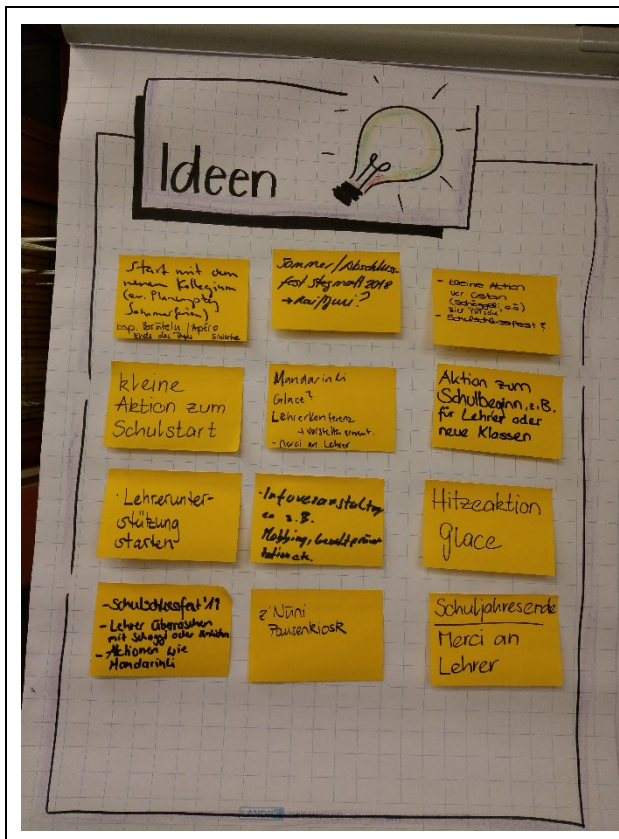 Ideen
Start mit dem
neuen Kolleginn
(ev. Planempfang
Sommerferien)
bsp. Bräteln / Apéro
Ende des Tages
Sommer/Abschluss-
fest Stegmatt 2018
→ Mai/Juni?
- kleine Aktion
vor Ostern
- Schulschlussfest?
kleine
Aktion zum
Schulstart
Mandarinli
Glace?
Lehrerkonferenz
→ vorstellen erneut.
- Merci an Lehrer
Aktion zum
Schulbeginn, z.B.
für Lehrer oder
neue Klassen
· Lehrerunter-
stützung
starten
· Infoveranstaltung
en z.B.
Mobbing, Gewaltpräven
tation etc.
Hitzeaktion
Glace
- Schulschlussfest '19
- Lehrer überraschen
mit Schoggi oder ähnlichem
- Aktionen wie
Mandarinli
z'Nüni
Pausenkiosk
Schuljahresende
Merci an
Lehrer